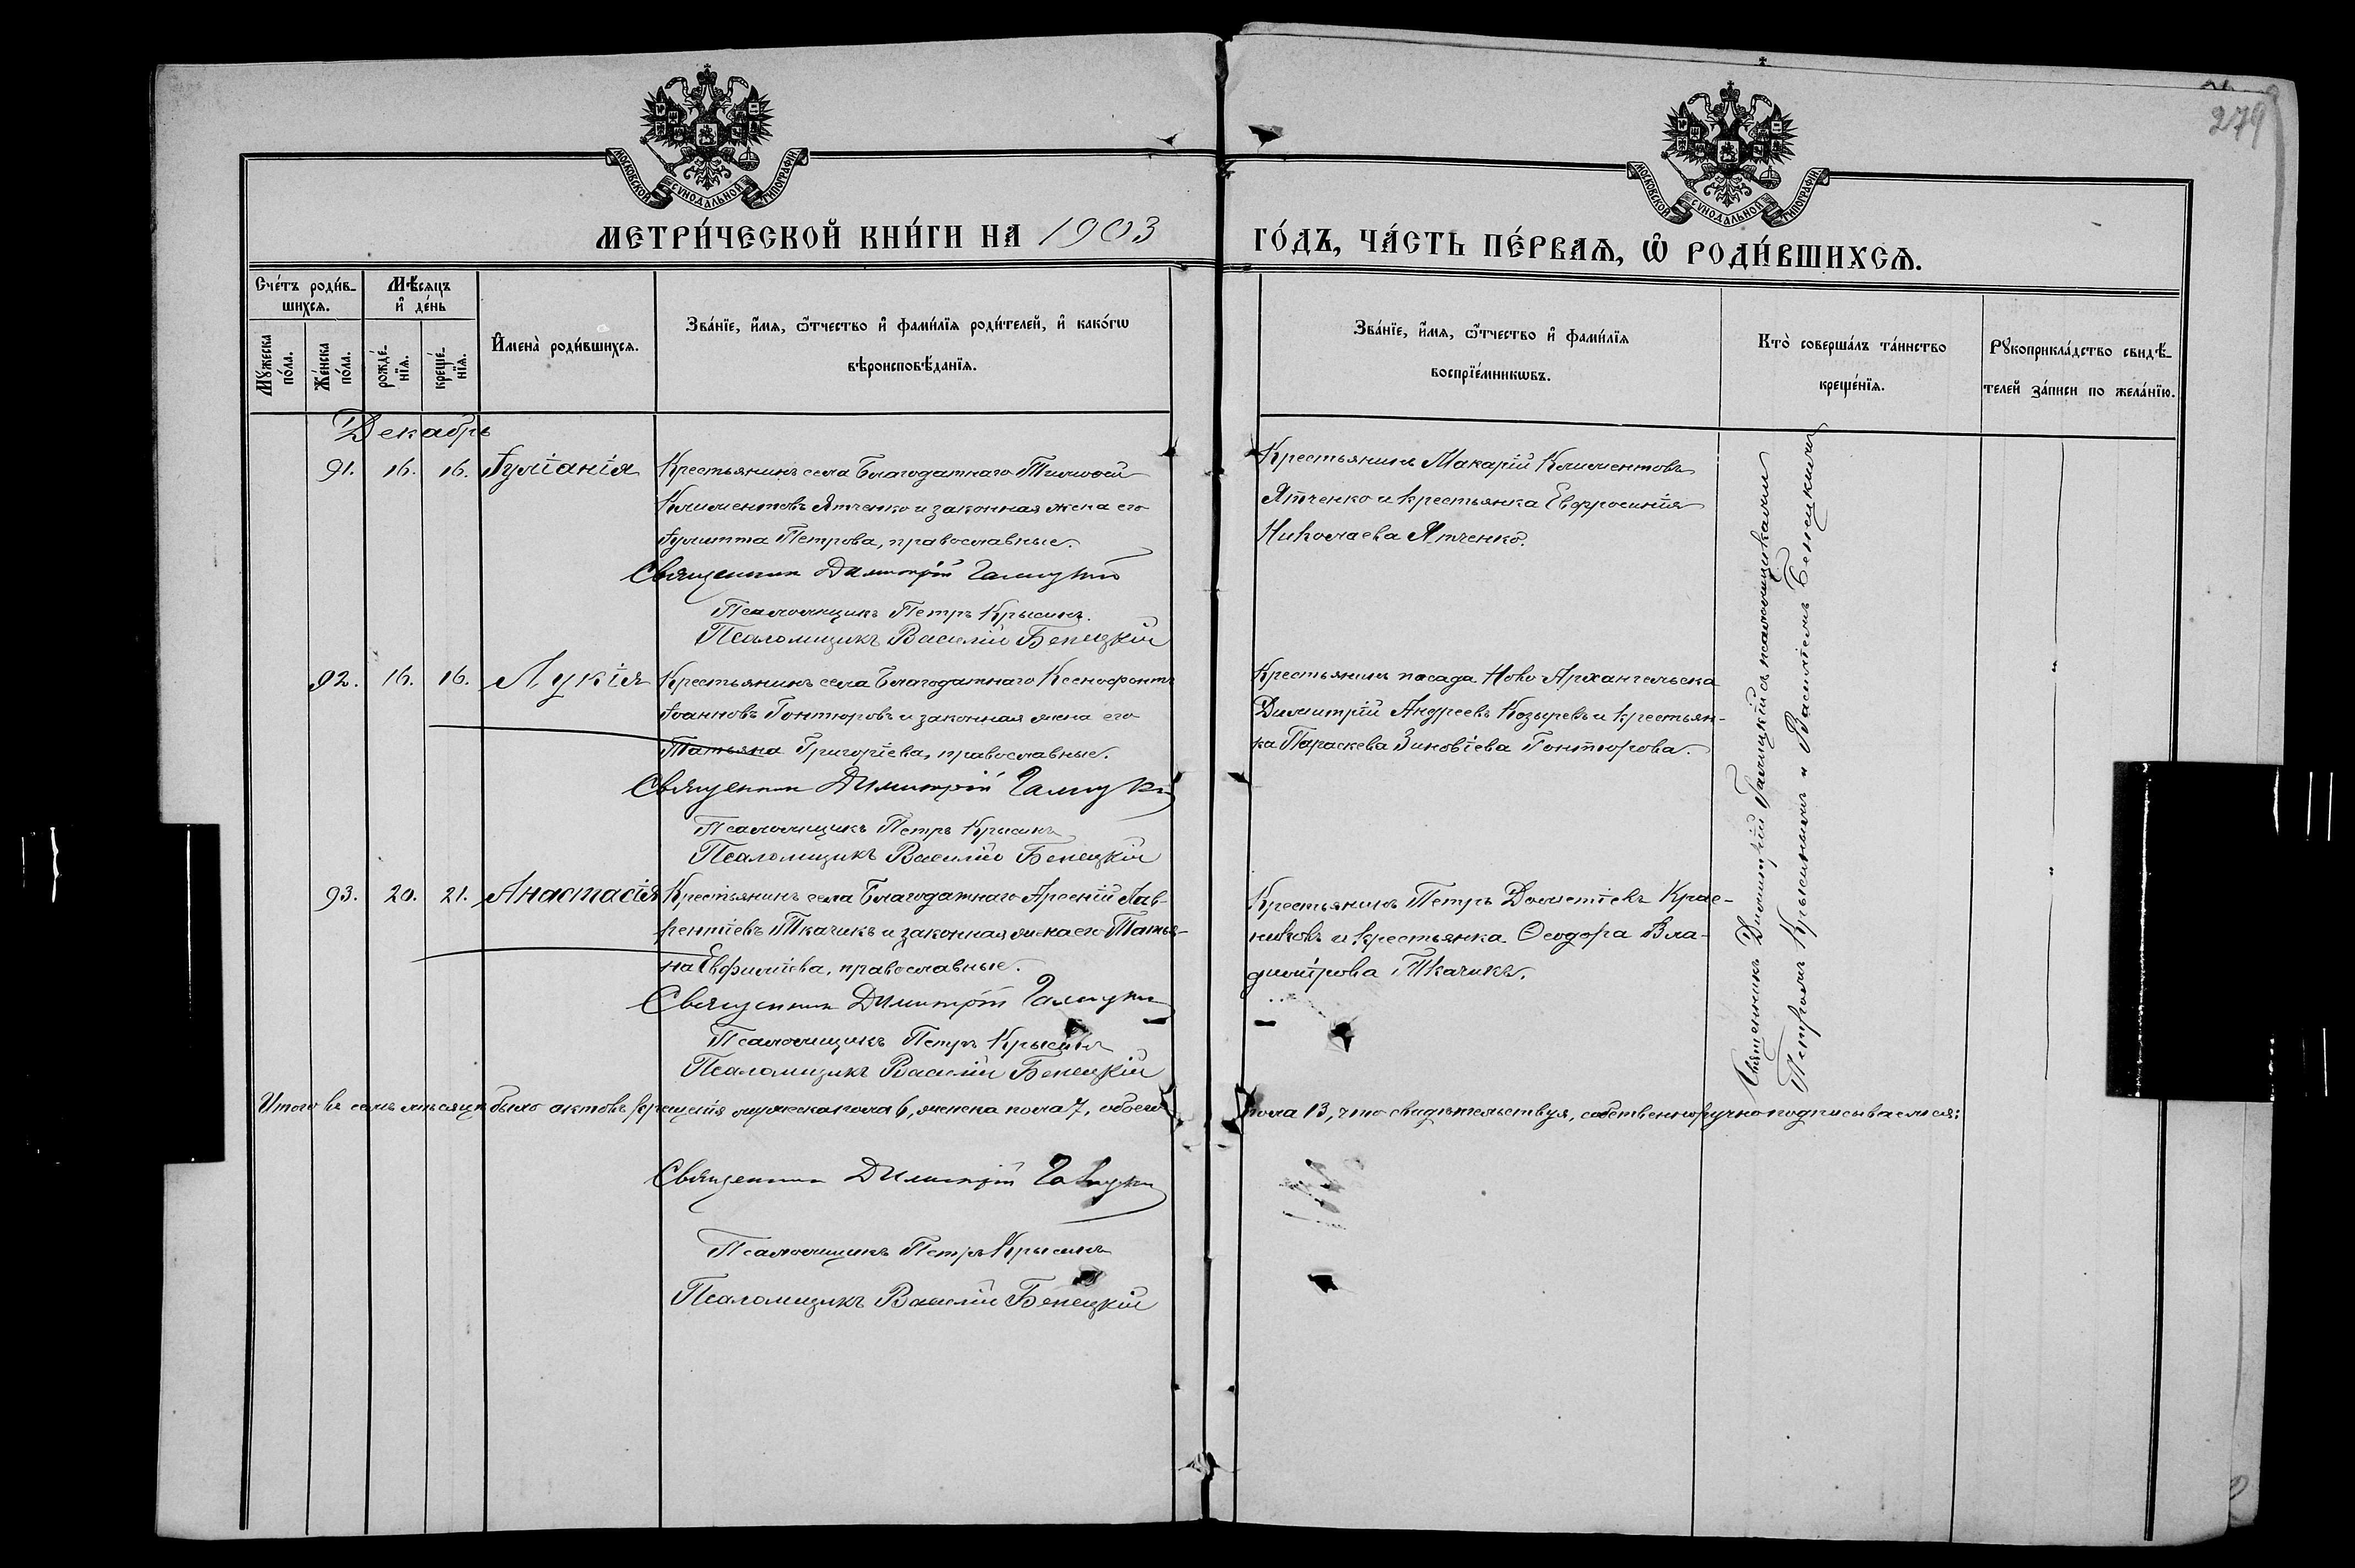 279
МОСКОВСКОЙ СѴНОДАЛЬНОЙ ТИПОГРАФІИ
МОСКОВСКОЙ СѴНОДАЛЬНОЙ ТИПОГРАФІИ
МЕТРИ́ЧЕСКОЙ КНИ́ГИ НА 1903
ГО́ДЪ, ЧА́СТЬ ПЕ́РВАѦ, Ѡ РОДИ́ВШИХСѦ.
Сче́тъ роди́в-
шихсѧ.
Мѣ́сѧцъ
и де́нь
Мꙋ́жеска
по́ла.
Же́нска
по́ла.
рожде́-
нїѧ.
креще́-
нїѧ.
Имена̀ роди́вшихсѧ.
Зва́нїе, и́мѧ, ѻ́тчество и фами́лїѧ роди́телей, и како́гѡ
вѣроисповѣ́данїѧ.
Зва́нїе, и́мѧ, ѻ́тчество и фами́лїѧ
воспрїе́мникѡвъ.
Кто̀ соверша́лъ та́инство
креще́нїѧ.
Рꙋкоприкла́дство свидѣ́-
телей за́писи по жела́нїю.
Декабрь
91. 16. 16. Іуліанія
Крестьянинъ села Благодатнаго Тимоѳей
Климентовъ Ятченко и законная жена его
Іулитта Петрова, православные.
Священник Димитрій Галицкій
Псаломщикъ Петръ Крысинъ.
Псаломщикъ Василій Бенецкій
Крестьянинъ Макарій Климентовъ
Ятченко и крестьянка Евфросинія
Николаева Ятченко.
92. 16. 16. Лукія
Крестьянинъ села Благодатнаго Ксенофонтъ
Іоанновъ Гонтюровъ и законная жена его
Татьяна Григоріева, православные.
Священник Димитрій Галицкій
Псаломщикъ Петръ Крысинъ
Псаломщикъ Василій Бенецкій
Крестьянинъ посада Ново Архангельска
Димитрій Андреевъ Козыревъ и крестьян-
ка Параскева Зиновіева Гонтюрова.
93. 20. 21. Анастасія
Крестьянинъ села Благодатнаго Арсеній Лав-
рентіевъ Ткачикъ и законная жена его Татья-
на Евфиміева, православные.
Священник Димитрій Галицкій
Псаломщикъ Петръ Крысинъ
Псаломщикъ Василій Бенецкій
Крестьянинъ Петръ Дометіевъ Крас-
никовъ и крестьянка Ѳеодора Вла-
димірова Ткачикъ.
Священникъ Димитрій Галицкій съ псаломщиками
Петромъ Крысинымъ и Василіемъ Бенецкимъ
Итого въ семъ мѣсяцѣ было актовъ крещенія мужеска пола 6, женска пола 7, обоего
пола 13, что свидѣтельствуя, собственноручно подписываемся:
Священник Димитрій Галицкій
Псаломщикъ Петръ Крысинъ
Псаломщикъ Василій Бенецкій